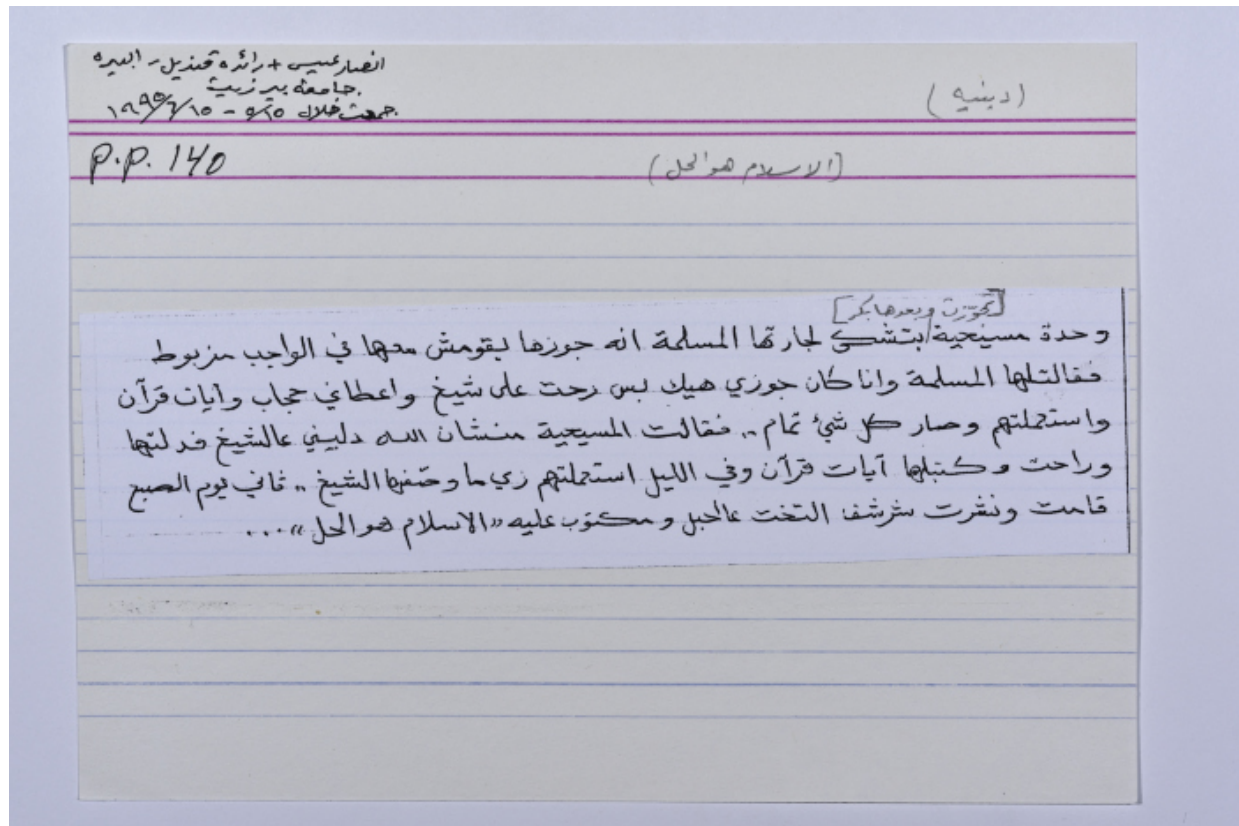 انصار عبيس + رائده قنديل - البيره
جامعة بير زيت
(دينيه)
جمعت خلال ١٥/٥ - ١٥/٦/١٩٩٥
P.P. 140
(الاسلام هو الحل)
[تجوّزت وبعدها بكر]
وحدة مسيحية بتشكي لجارتها المسلمة انه جوزها بقومش معها في الواجب مزبوط
فقالتلها المسلمة وانا كان جوزي هيك بس رحت على شيخ واعطاني حجاب وآيات قرآن
واستعملتهم وصار كل شيئ تمام .. فقالت المسيحية منشان الله دليني عالشيخ فدلتها
وراحت وكتبلها آيات قرآن وفي الليل استعملتهم زي ما وصّفها الشيخ .. ثاني يوم الصبح
قامت ونشرت شرشف التخت عالحبل ومكتوب عليه "الاسلام هو الحل" ...